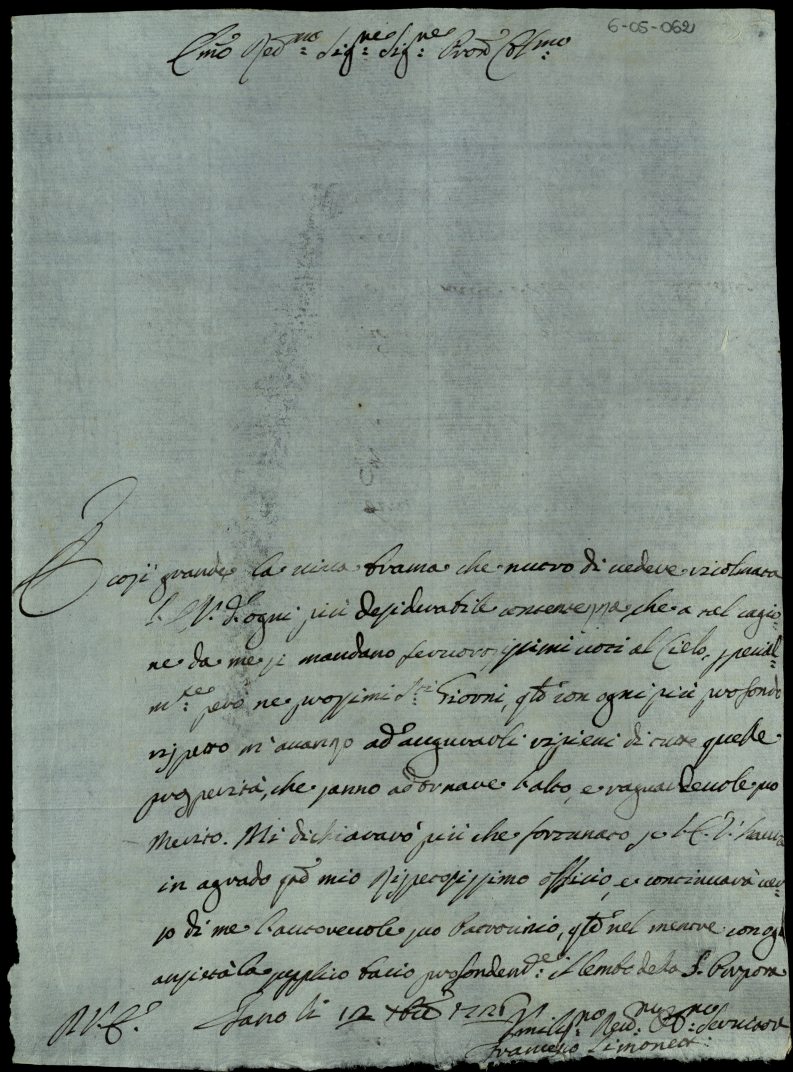 6-05-062
Emo Redmo Sigre Sigre Pron Colmo
E così grande la viva brama che nutro di vedere ricolmata
l'E.V. d'ogni più desiderabile contentezza che a tal cagio-
ne da me si mandano fervorosissimi voci al Cielo, special-
mte però ne prossimi Sti Giorni, qto con ogni più profondo
rispetto m'avanzo ad'augurarli ripieni di tutte quelle
prosperità, che sanno adornare l'alto, e raguardevole suo
Merito. Mi dichiararò più che fortunato se l'E.V. haurà
in agrado qto mio Rispetosissimo offitio, e continuarà ver-
so di me l'autorevole suo Patrocinio, qto nel mentre con ogi
ansietà la supplico bacio profondente il lembo della S. Porpora
D.V.E. Fano li 12 Xbre 1721
Umilismo Devmo Obmo Servitore
Francesco Simonett